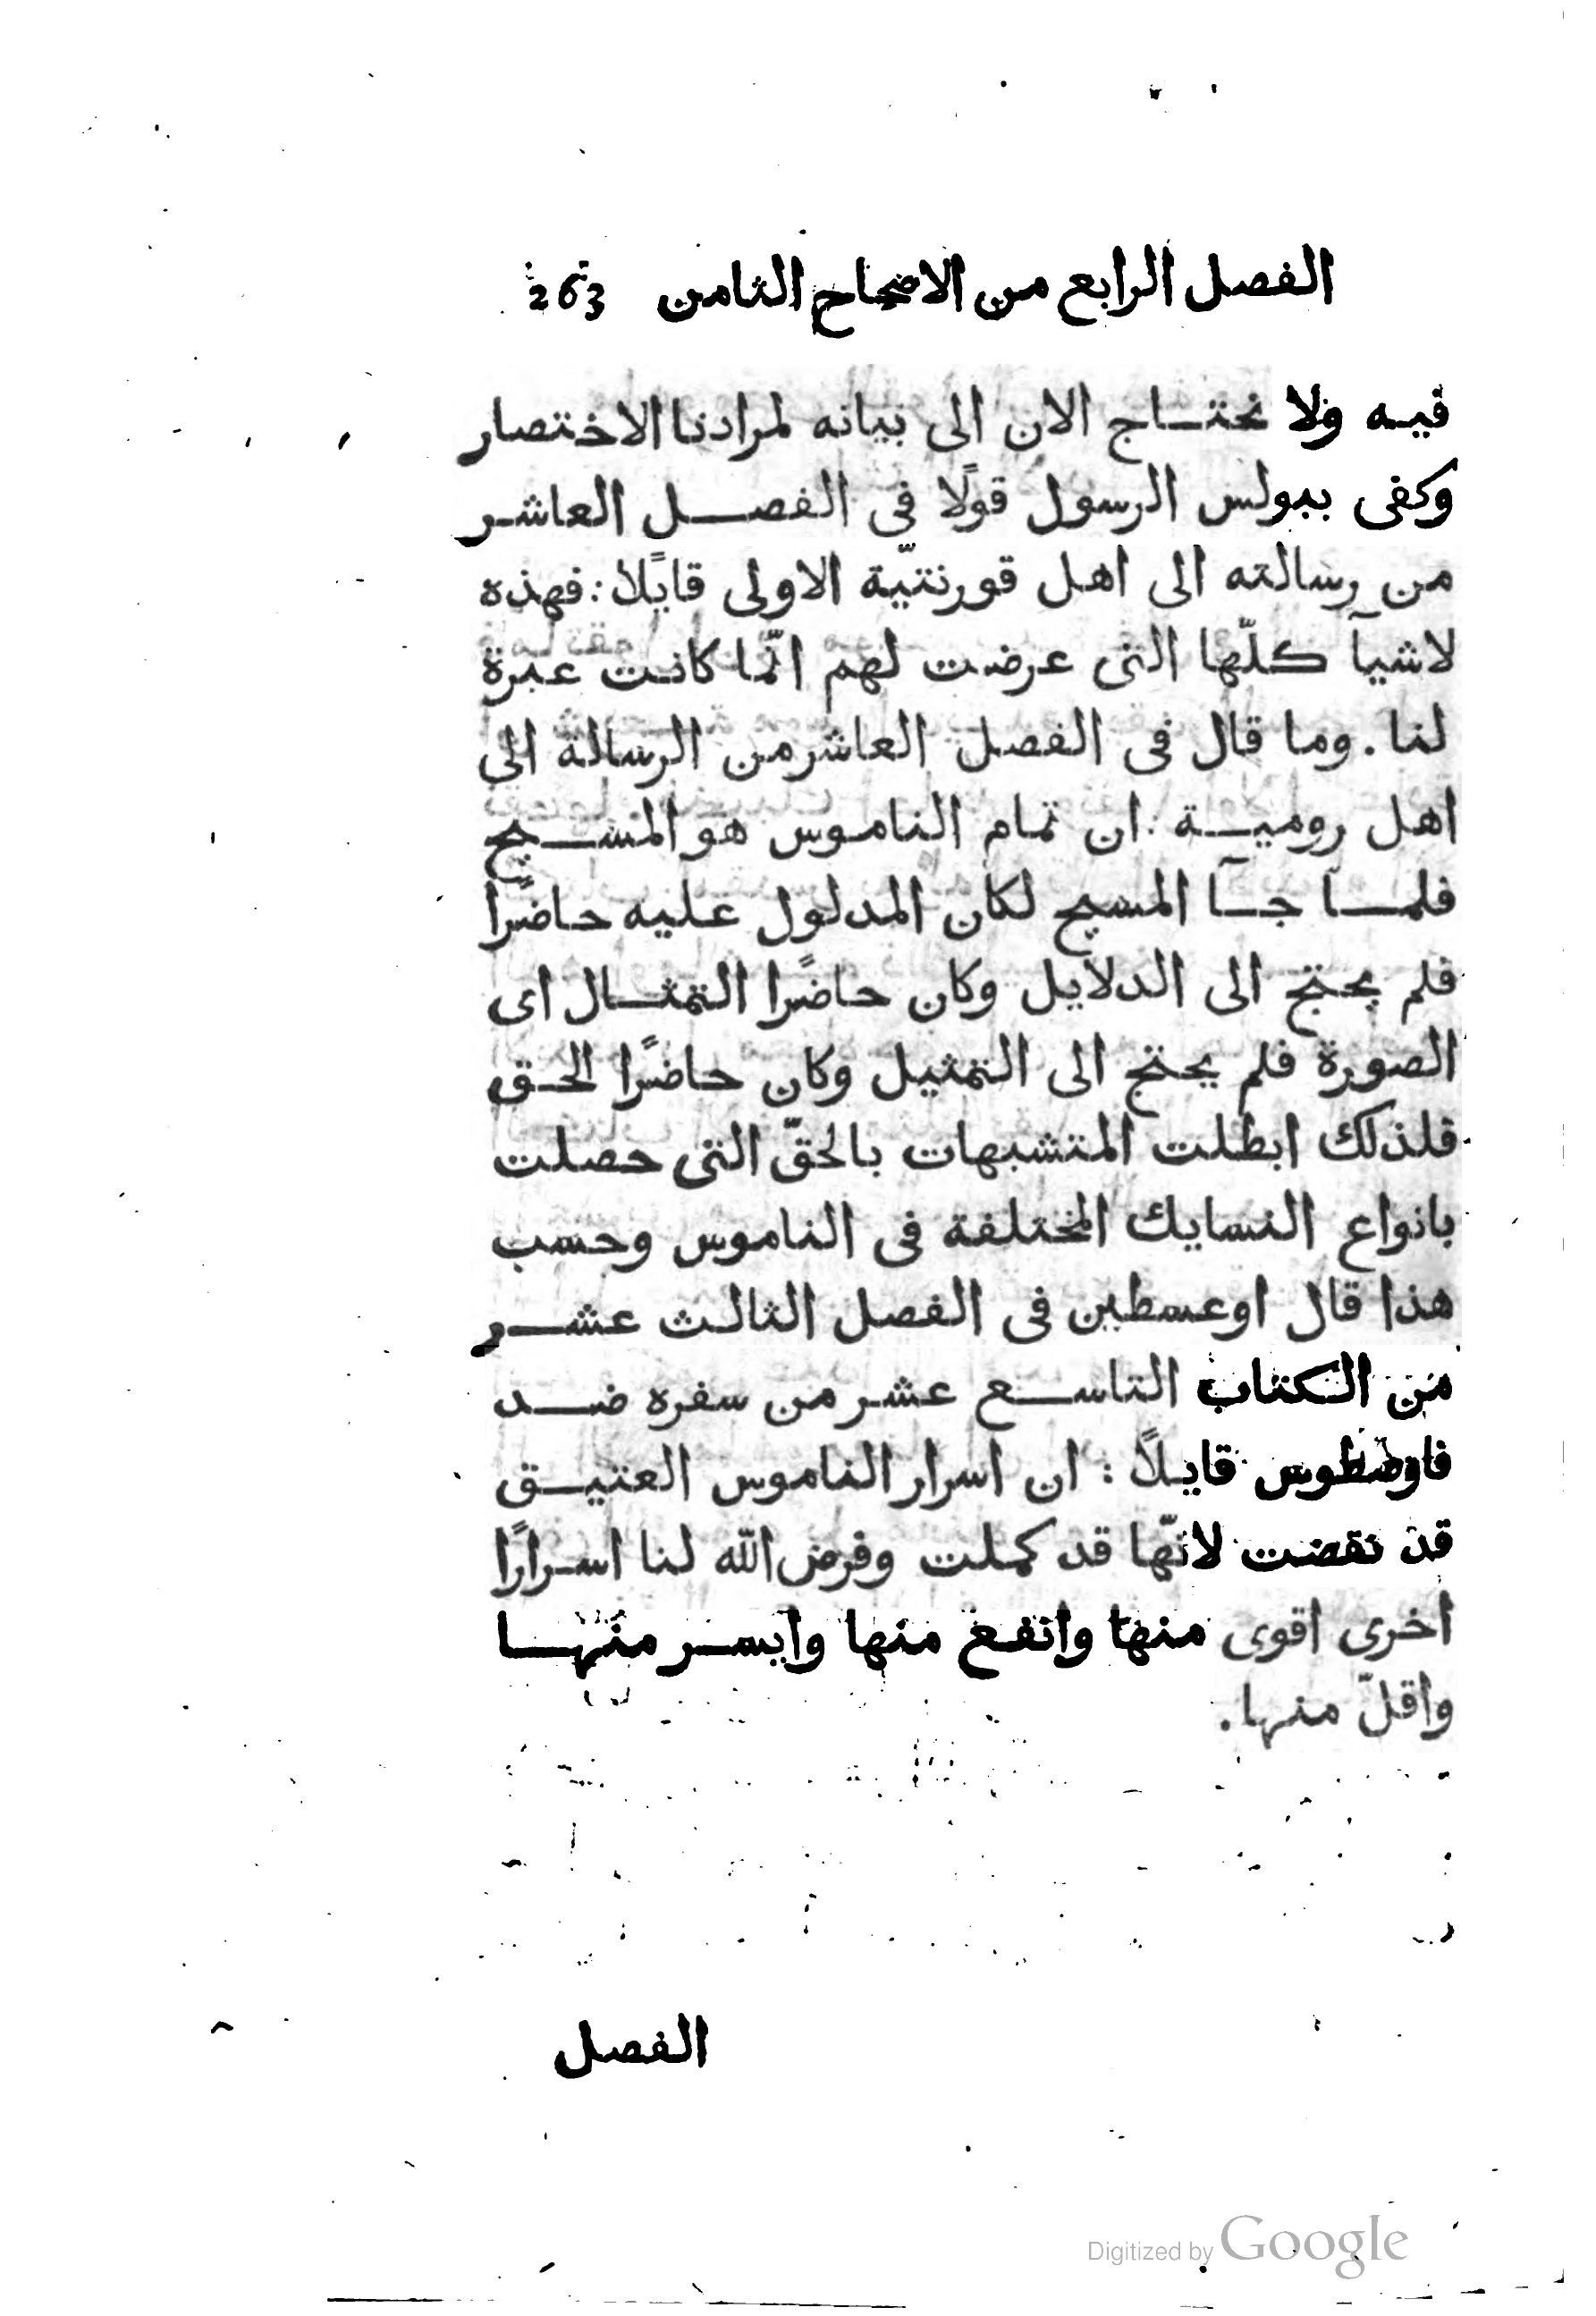 الفصل الرابع من الاصحاح الثامن 263
فيه ولا نحتاج الان الى بيانه لمرادنا الاختصار
وكفى ببولس الرسول قولًا فى الفصل العاشر
من رسالته الى اهل قورنتيّة الاولى قايلًا: فهذه
لاشيآ كلّها التى عرضت لهم انّما كانت عبرة
لنا. وما قال فى الفصل العاشر من الرسالة الى
اهل رومية: ان تمام الناموس هو المسيح
فلما جآ المسيح لكان المدلول عليه حاضرًا
فلم يحتج الى الدلايل وكان حاضرًا التمثال اى
الصورة فلم يحتج الى التمثيل وكان حاضرًا الحق
فلذلك ابطلت المتشبهات بالحقّ التى حصلت
بانواع النسايك المختلفة فى الناموس وحسب
هذا قال اوغسطين فى الفصل الثالث عشر
من الكتاب التاسع عشر من سفره ضد
قايلًا: ان اسرار الناموس العتيق
قد نقضت لانّها قد كملت وفرض الله لنا اسرارًا
اخرى اقوى منها وانفع منها وايسر منها
واقلّ منها.
الفصل
Digitized by Google